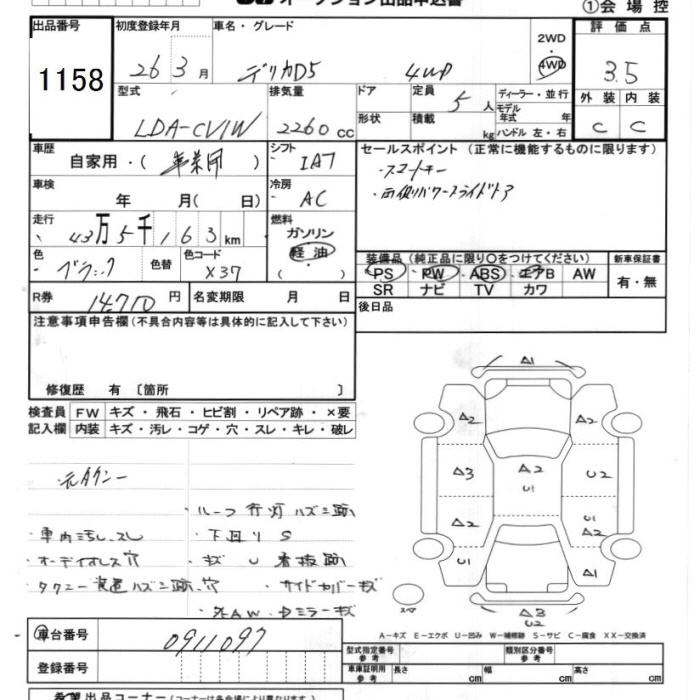 ①会場控
出品番号
1158
初度登録年月
26年 3月
車名・グレード
デリカD5 4WD
2WD
4WD
評価点
3.5
型式
LDA-CV1W
排気量
2260 cc
ドア
形状
定員
5人
積載
kg
ディーラー・並行
モデル
年式 年
ハンドル 左・右
外装 内装
C C
車歴
自家用・( 事業用 )
シフト
IA7
車検
年 月( 日)
冷房
AC
走行
43万5千163 km
燃料
ガソリン
軽油
( )
色
ブラック
色替
色コード
X37
R券
14,710円
名変期限 月 日
セールスポイント (正常に機能するものに限ります)
・スマートキー
・両側パワースライドドア
装備品 (純正品に限り○をつけてください)
PS PW ABS エアB AW
SR ナビ TV カワ
新車保証書
有・無
後日品
注意事項申告欄(不具合内容等は具体的に記入して下さい)
修復歴 有 〔箇所 〕
検査員 FW キズ・飛石・ヒビ割・リペア跡・×要
記入欄 内装 キズ・汚レ・コゲ・穴・スレ・キレ・破レ
・元タクシー
・ルーフ行灯ハズシ跡
・車内汚レ、スレ
・下回りS
・オーディオレス穴
・キズ U 看板跡
・タクシー装置ハズシ跡、穴
・サイドカバーキズ
・外AW・Dミラーキズ
A1
A2
A2
A3
A2
U1
U2
A2
U1
U2
A2
A1
A3
U2
スマ
A-キズ E-エクボ U-凹み W-補修跡 S-サビ C-腐食 XX-交換済
車台番号
0911097
登録番号
型式指定番号
参考
類別区分番号
参考
車庫証明用
参考
長さ cm
幅 cm
高さ cm